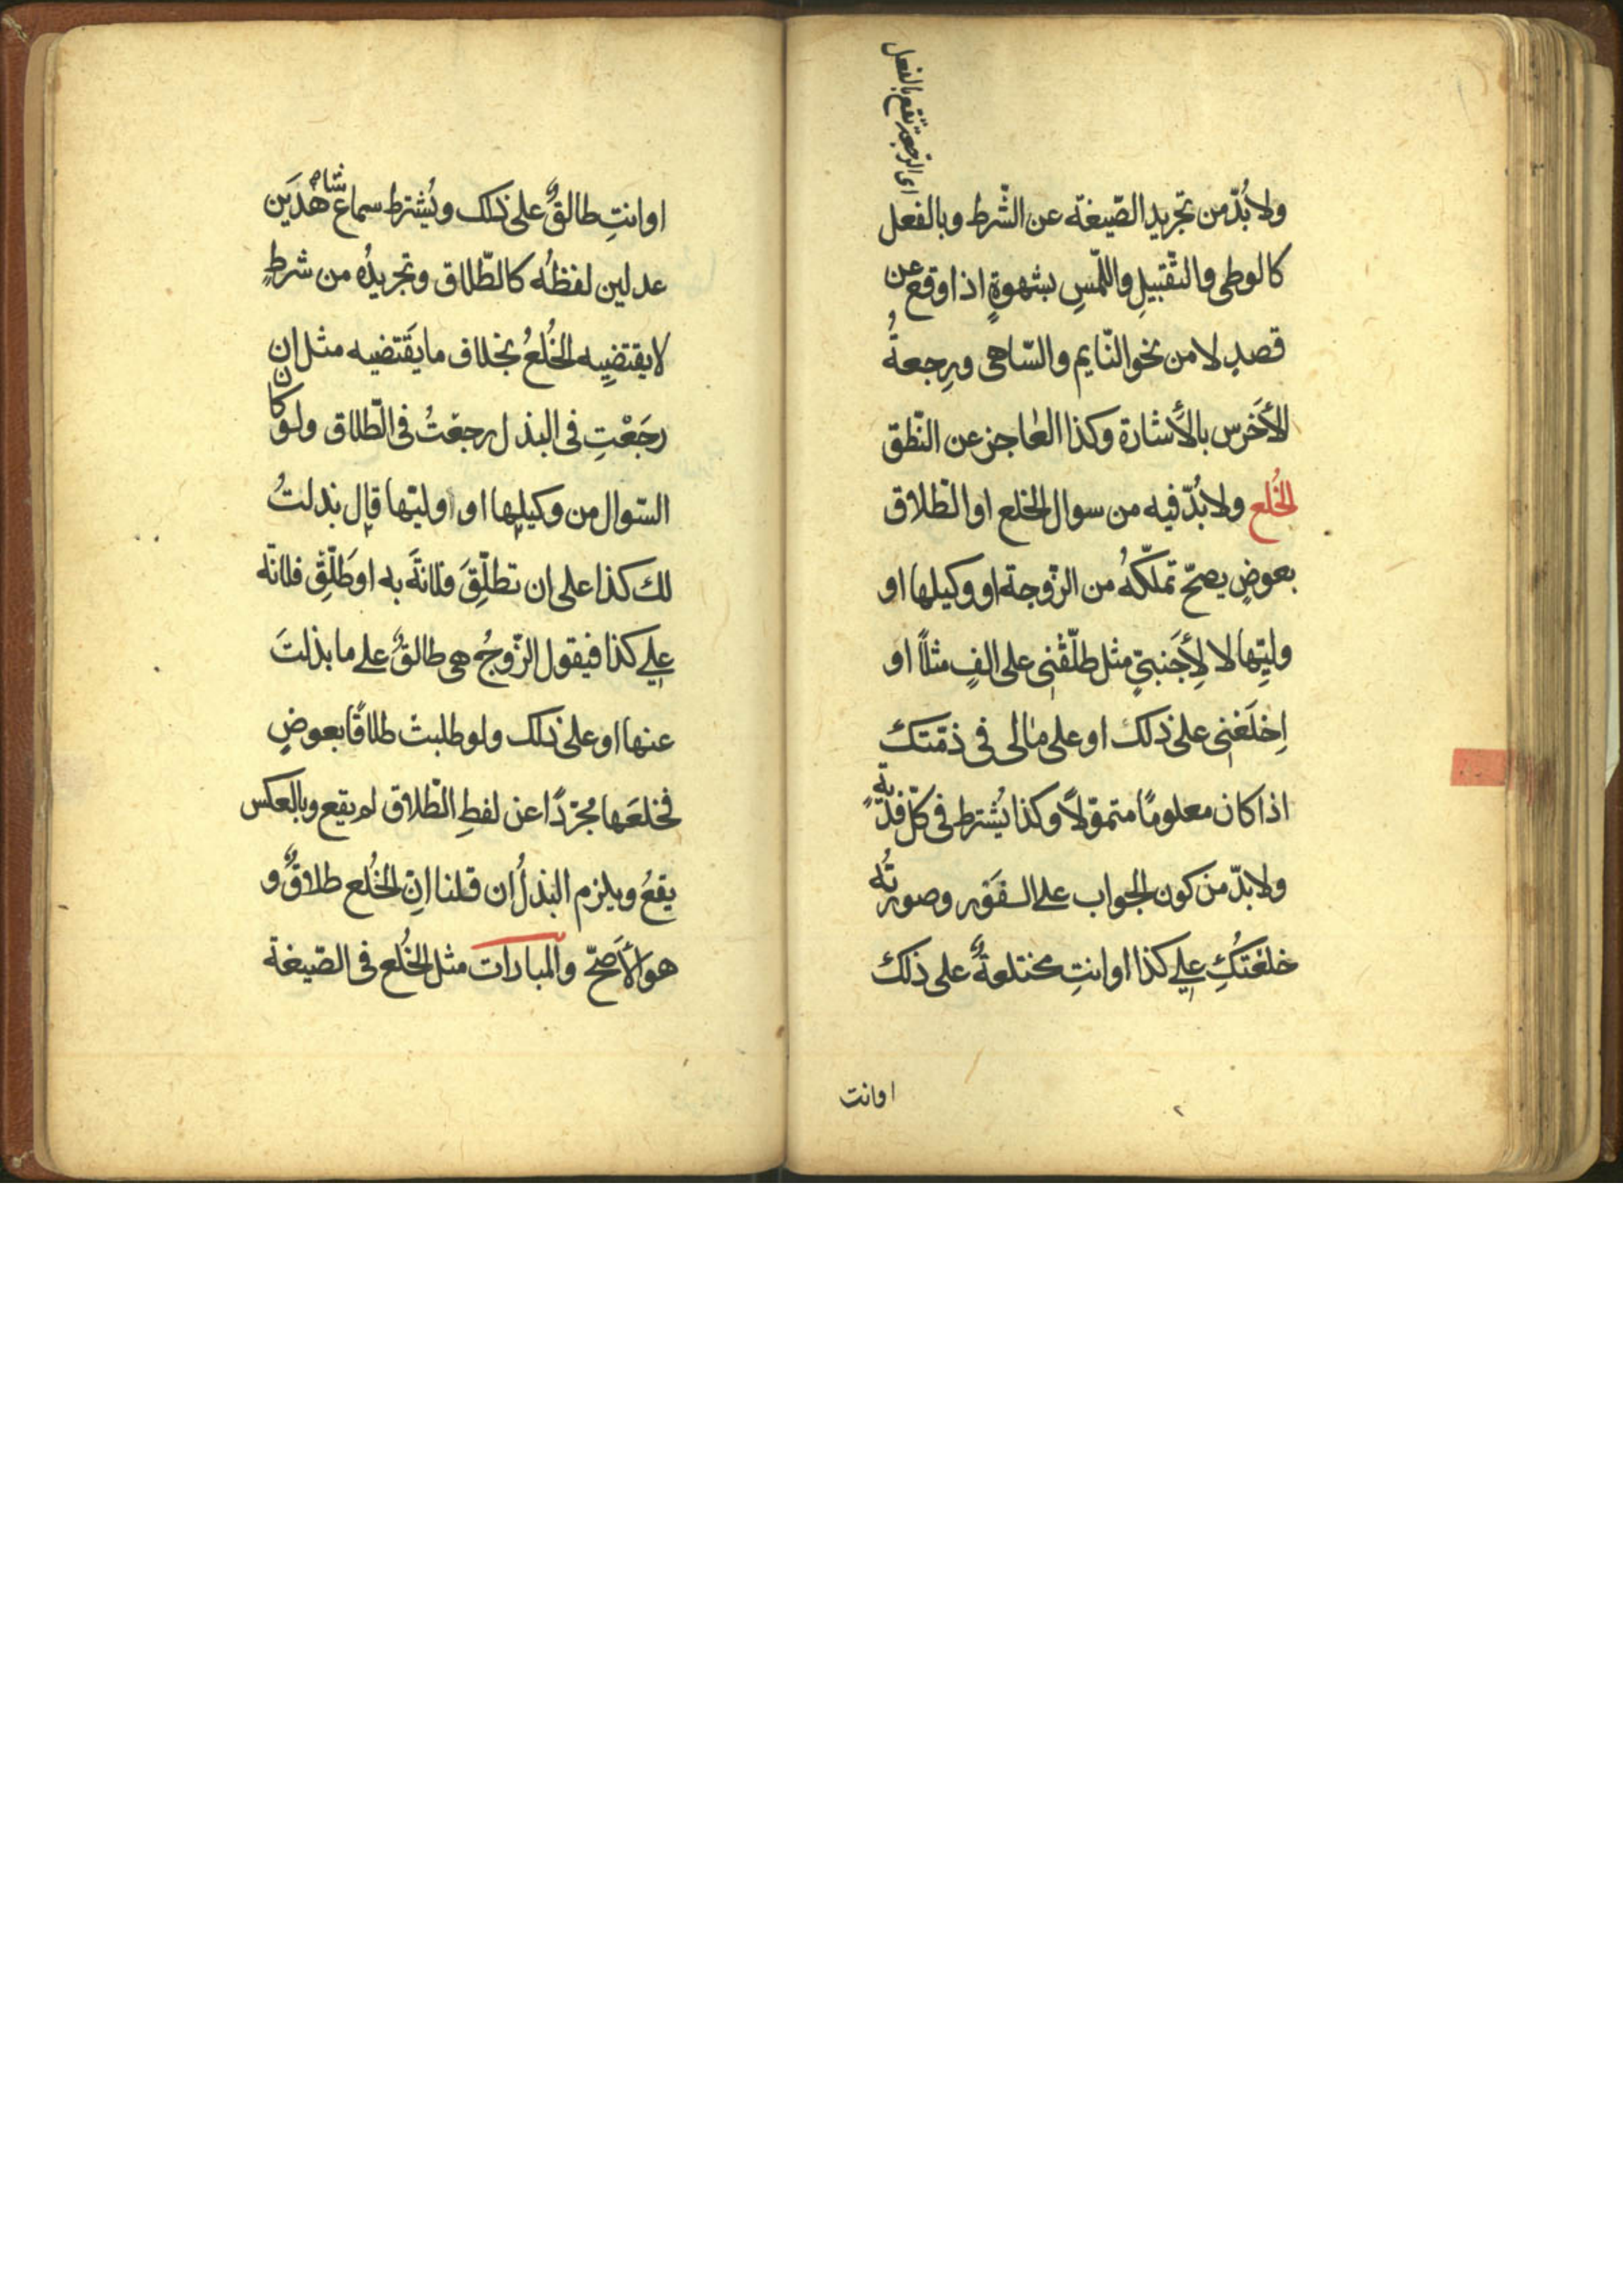 اى الرجعة تقع بالفعل
ولا بُدّ من تجريد الصّيغة عن الشّرط وبالفعل
كالوطى والتّقبيلِ واللّمسِ بشهوةٍ اذا وقع عن
قصدٍ لا من نحو النّايم والسّاهى ورجعةُ
الأَخرس بالأشارة وكذا العاجز عن النّطق
الخُلع ولا بُدّ فيه من سوال الخلع او الطّلاق
بعوضٍ يصحّ تملّكهُ من الزّوجة او وكيلها او
وليّها لا لأَجنبىّ مثل طلّقنى على الفٍ مثلاً او
اِخلَعنى على ذلك او على مالى فى ذمّتك
اذا كان معلومًا متموّلاً وكذا يُشترط فى كلّ فديةٍ
ولا بدّ من كون الجواب على الفَور وصورتُه
خلعتُكِ على كذا او انتِ مختلعةٌ على ذلك
او انت
او انتِ طالقٌ على ذلك ويُشترط سماع شاهدَين
عدلين لفظُه كالطّلاق وتجريدُه من شرطٍ
لا يقتضِيه الخُلعُ بخلاف ما يَقتضيه مثل ان
رجَعْتِ فى البذل رجعتُ فى الطّلاق ولو كان
السّوال من وكيلها او وليّها قال بذلتُ
لك كذا على ان تطلّقَ فلانةَ به او طَلّق فلانة
على كذا فيقول الزّوجُ هى طالقٌ على ما بذلتَ
عنها او على ذلك ولو طلبت طلاقًا بعوضٍ
فخلعَها مُجرّدًا عن لفظِ الطّلاق لم يقع وبالعكس
يقعُ ويلزم البذلُ ان قلنا انّ الخُلع طلاقٌ و
هو الأَصحّ والمبارات مثل الخُلع فى الصّيغة